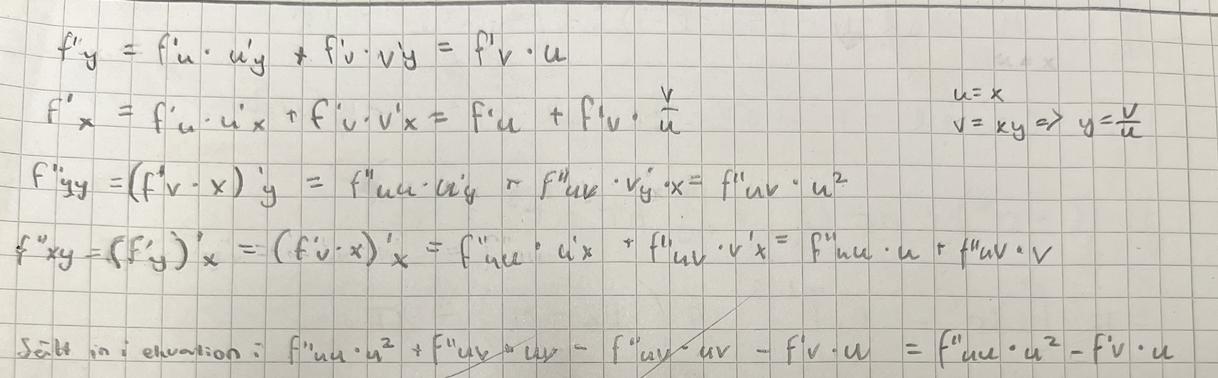 f'y = f'u · u'y + f'v · v'y = f'v · u
f'x = f'u · u'x + f'v · v'x = f'u + f'v · v/u
u = x
v = xy => y = v/u
f''yy = (f'v · x)'y = f''uu · u'y + f''uv · v'y · x = f''uv · u²
f''xy = (f'y)'x = (f'v · x)'x = f''uu · u'x + f''uv · v'x = f''uu · u + f''uv · v
Sätt in i ekvation: f''uu · u² + f''uv · uv - f''uv · uv - f'v · u = f''uu · u² - f'v · u